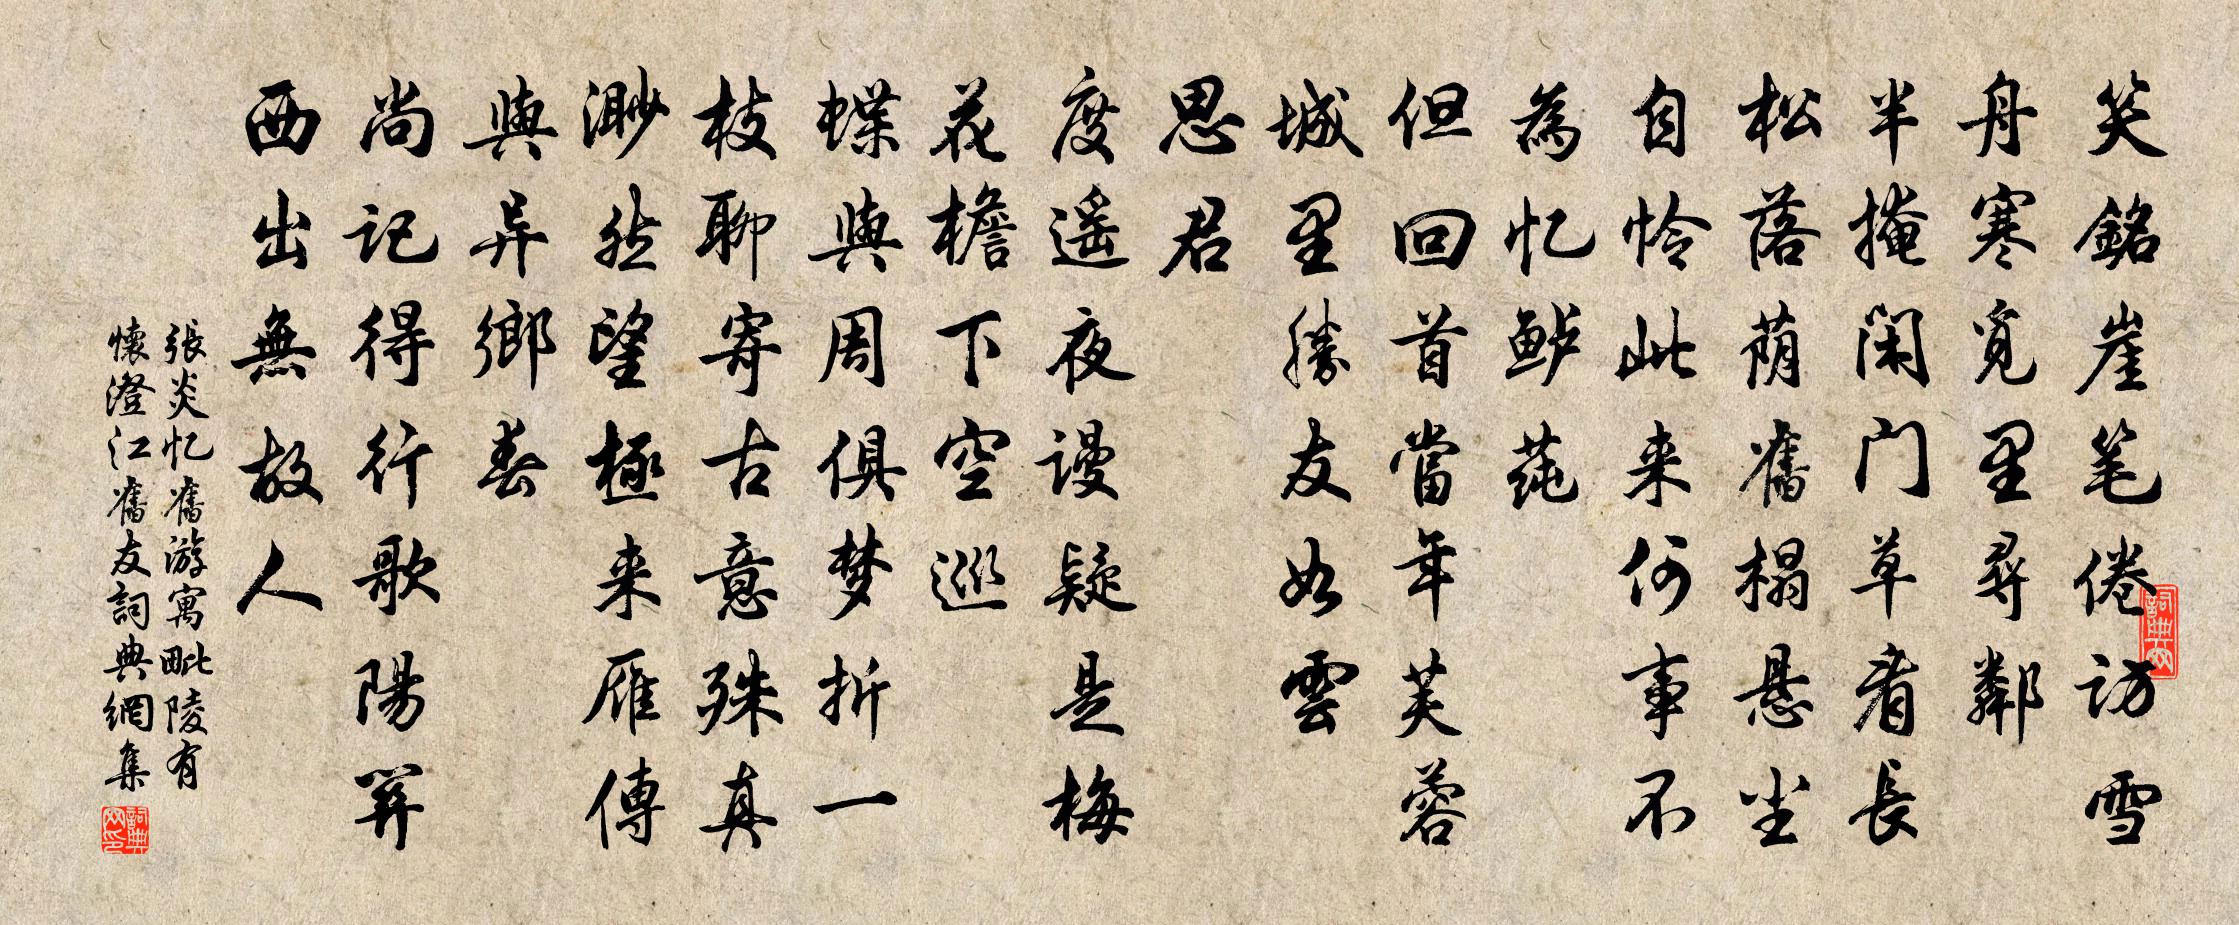 笑銘崖笔倦访雪
舟寒觅里尋鄰
半掩闲门草看長
松落荫舊榻悬尘
自怜此来何事不
為忆鲈莼
但回首當年芙蓉
城里勝友如雲
思君
度遥夜谩疑是梅
花檐下空巡
蝶與周俱梦折一
枝聊寄古意殊真
渺然望極来雁傳
與异鄉春
尚记得行歌陽関
西出無故人
張炎忆舊游寓毗陵有
懷澄江舊友詞典網集
詞典网
詞典网印